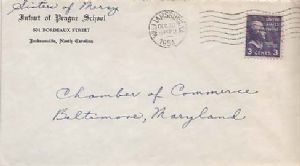 Sisters of Mercy
Infant of Prague School
501 BORDEAUX STREET
Jacksonville, North Carolina
1954
3 CENTS 3
Chamber of Commerce
Baltimore, Maryland